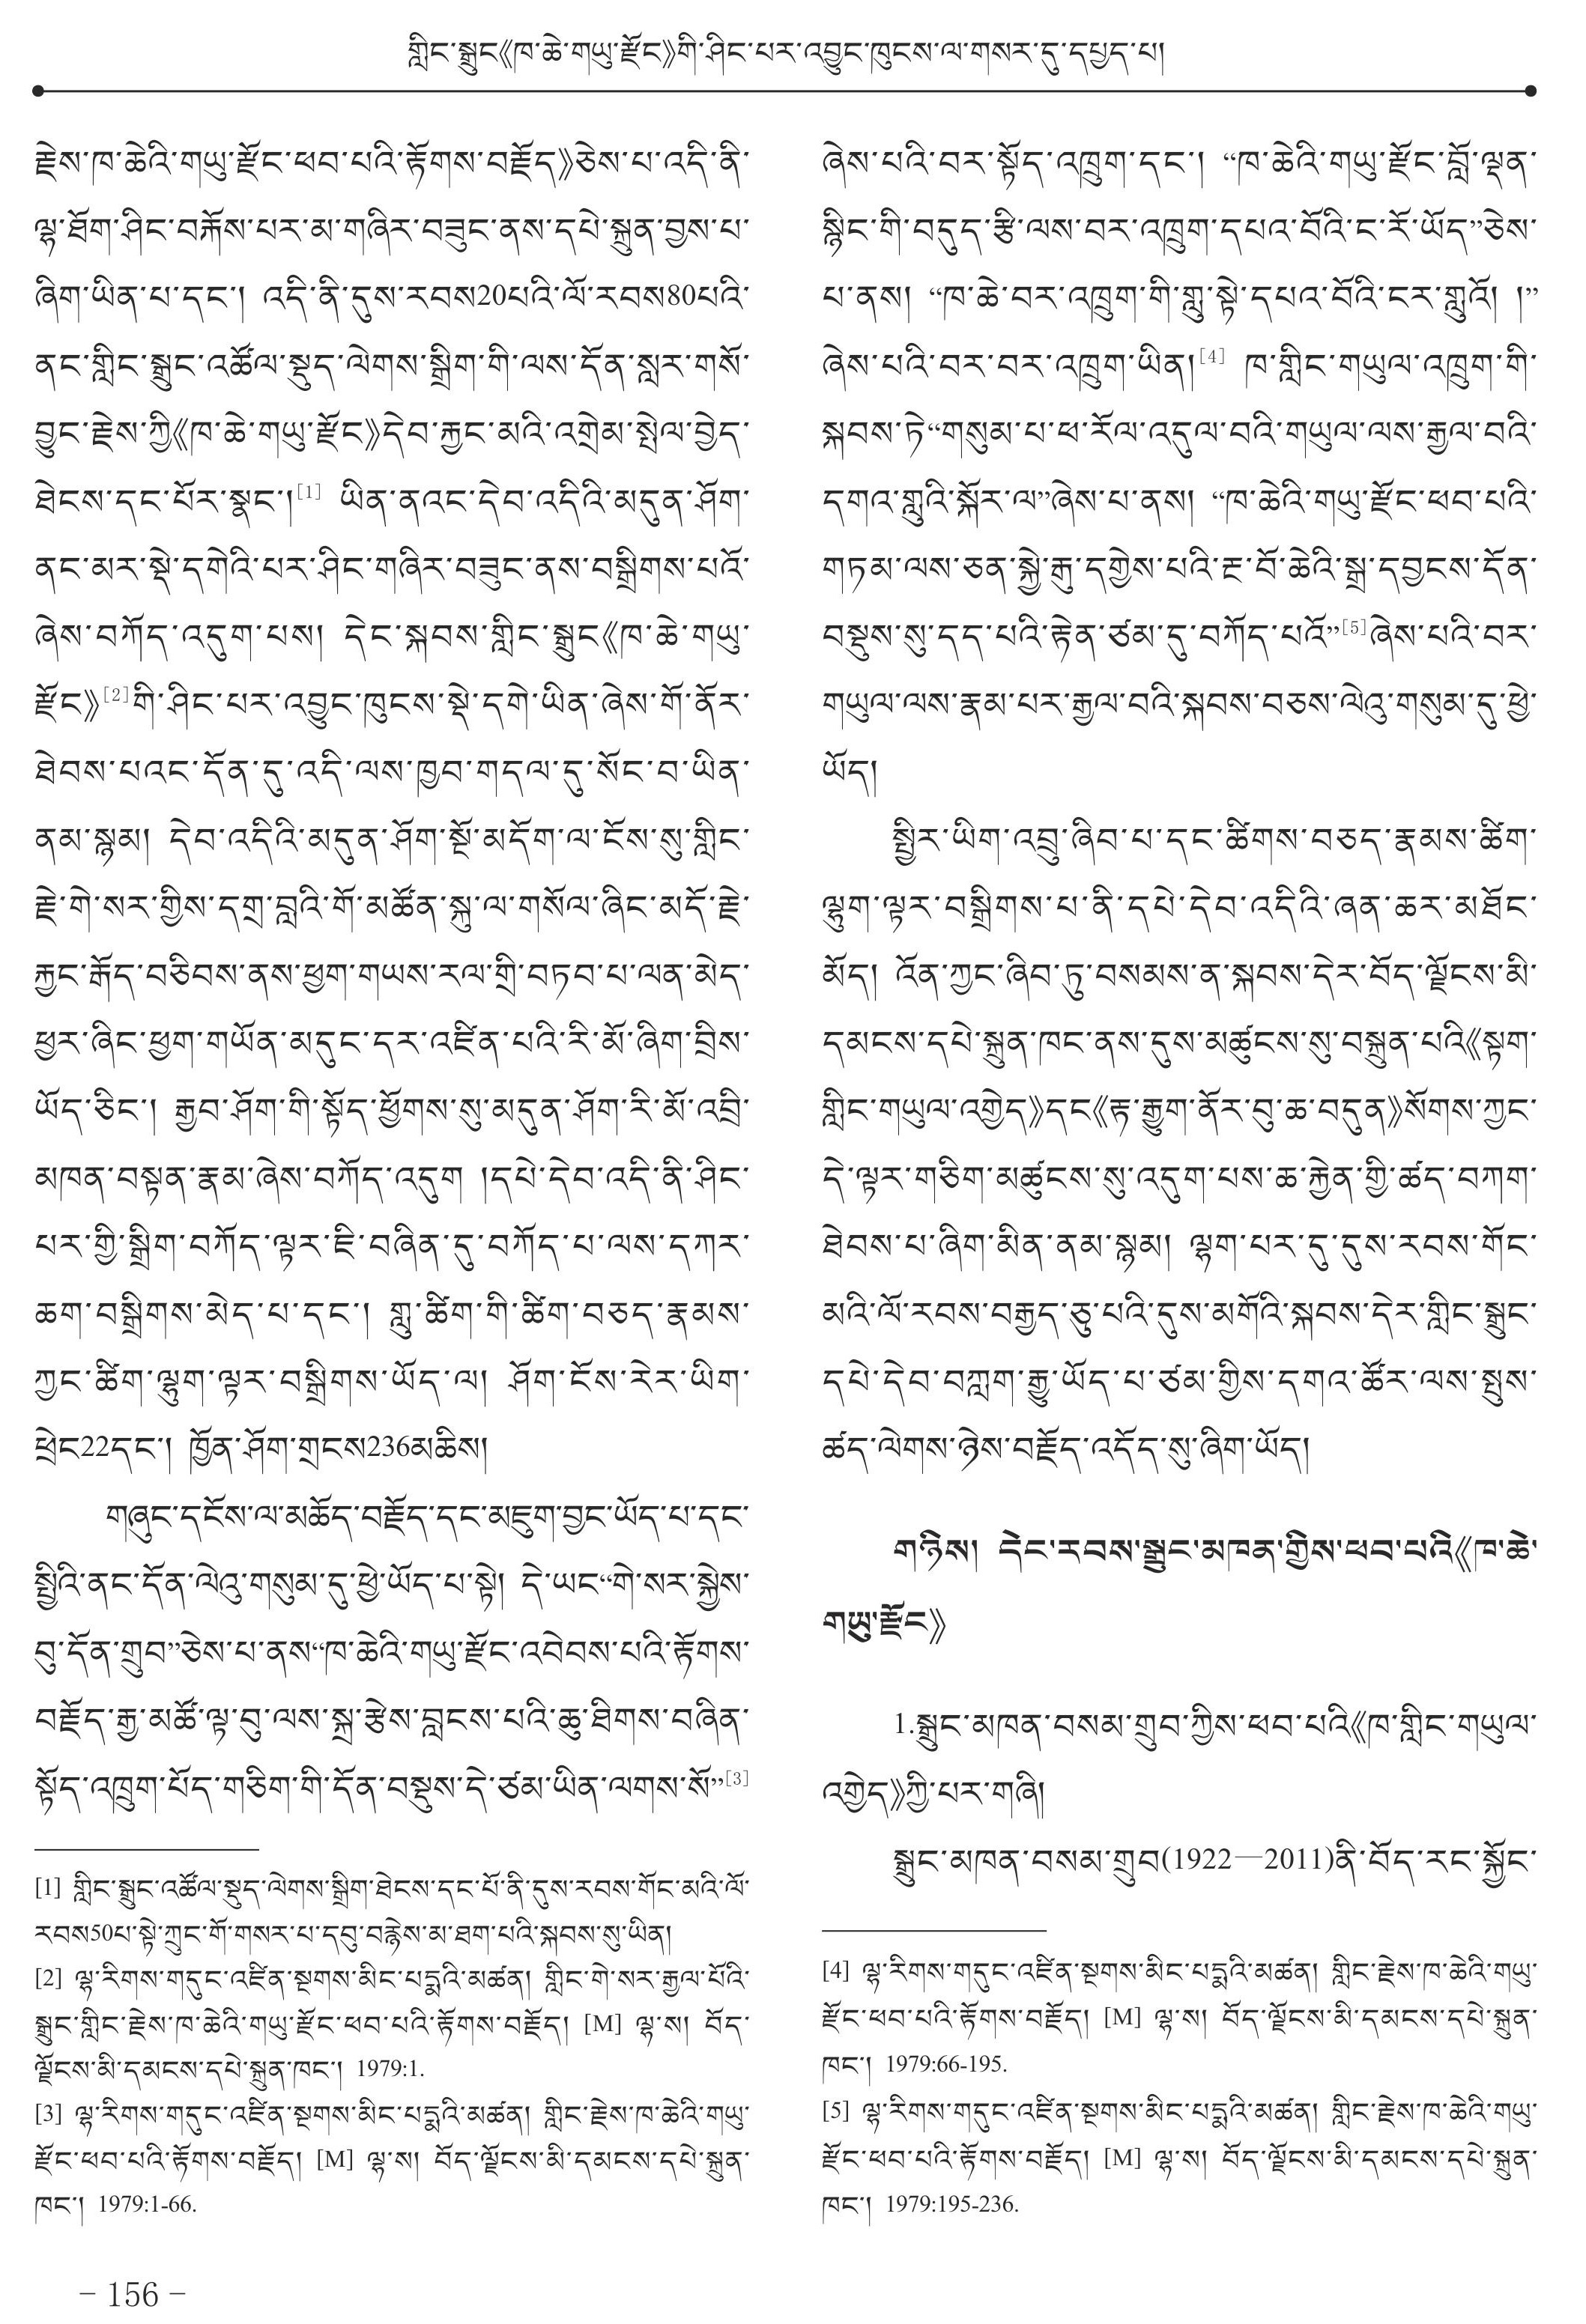 གླིང་སྒྲུང《ཁ་ཆེ་གཡུ་རྫོང》གི་ཤིང་པར་འབྱུང་ཁུངས་ལ་གསར་དུ་དཔྱད་པ།
རྗེས་ཁ་ཆེའི་གཡུ་རྫོང་ཕབ་པའི་རྟོགས་བརྗོད》ཅེས་པ་འདི་ནི་
ལྷ་ཐོག་ཤིང་བརྐོས་པར་མ་གཞིར་བཟུང་ནས་དཔེ་སྐྲུན་བྱས་པ་
ཞིག་ཡིན་པ་དང་། འདི་ནི་དུས་རབས20པའི་ལོ་རབས80པའི་
ནང་གླིང་སྒྲུང་འཚོལ་སྡུད་ལེགས་སྒྲིག་གི་ལས་དོན་སླར་གསོ་
བྱུང་རྗེས་ཀྱི《ཁ་ཆེ་གཡུ་རྫོང》དེབ་རྐྱང་མའི་འགྲེམ་སྤེལ་བྱེད་
ཐེངས་དང་པོར་སྣང་།[1] ཡིན་ནའང་དེབ་འདིའི་མདུན་ཤོག་
ནང་མར་སྡེ་དགེའི་པར་ཤིང་གཞིར་བཟུང་ནས་བསྒྲིགས་པའོ་
ཞེས་བཀོད་འདུག་པས། དེང་སྐབས་གླིང་སྒྲུང《ཁ་ཆེ་གཡུ་
རྫོང》[2]གི་ཤིང་པར་འབྱུང་ཁུངས་སྡེ་དགེ་ཡིན་ཞེས་གོ་ནོར་
ཐེབས་པའང་དོན་དུ་འདི་ལས་ཁྱབ་གདལ་དུ་སོང་བ་ཡིན་
ནམ་སྙམ། དེབ་འདིའི་མདུན་ཤོག་སྔོ་མདོག་ལ་ངོས་སུ་གླིང་
རྗེ་གེ་སར་གྱིས་དགྲ་བླའི་གོ་མཚོན་སྐུ་ལ་གསོལ་ཞིང་མདོ་རྗེ་
རྐྱང་རྒོད་བཅིབས་ནས་ཕྱག་གཡས་རལ་གྲི་བཏབ་པ་ལན་མེད་
ཕྱར་ཞིང་ཕྱག་གཡོན་མདུང་དར་འཛིན་པའི་རི་མོ་ཞིག་བྲིས་
ཡོད་ཅིང་། རྒྱབ་ཤོག་གི་སྟོད་ཕྱོགས་སུ་མདུན་ཤོག་རི་མོ་འབྲི་
མཁན་བསྟན་རྣམ་ཞེས་བཀོད་འདུག །དཔེ་དེབ་འདི་ནི་ཤིང་
པར་གྱི་སྒྲིག་བཀོད་ལྟར་ཇི་བཞིན་དུ་བཀོད་པ་ལས་དཀར་
ཆག་བསྒྲིགས་མེད་པ་དང་། གླུ་ཚིག་གི་ཚིག་བཅད་རྣམས་
ཀྱང་ཚིག་ལྷུག་ལྟར་བསྒྲིགས་ཡོད་ལ། ཤོག་ངོས་རེར་ཡིག་
ཕྲེང22དང་། ཁྱོན་ཤོག་གྲངས236མཆིས།
གཞུང་དངོས་ལ་མཆོད་བརྗོད་དང་མཇུག་བྱང་ཡོད་པ་དང་
སྤྱིའི་ནང་དོན་ལེའུ་གསུམ་དུ་ཕྱེ་ཡོད་པ་སྟེ། དེ་ཡང“གེ་སར་སྐྱེས་
བུ་དོན་གྲུབ”ཅེས་པ་ནས“ཁ་ཆེའི་གཡུ་རྫོང་འབེབས་པའི་རྟོགས་
བརྗོད་རྒྱ་མཚོ་ལྟ་བུ་ལས་སྐྲ་རྩེས་བླངས་པའི་ཆུ་ཐིགས་བཞིན་
སྟོད་འཁྲུག་པོད་གཅིག་གི་དོན་བསྡུས་དེ་ཙམ་ཡིན་ལགས་སོ”[3]
[1] གླིང་སྒྲུང་འཚོལ་སྡུད་ལེགས་སྒྲིག་ཐེངས་དང་པོ་ནི་དུས་རབས་གོང་མའི་ལོ་
རབས50པ་སྟེ་ཀྲུང་གོ་གསར་པ་དབུ་བརྙེས་མ་ཐག་པའི་སྐབས་སུ་ཡིན།
[2] ལྷ་རིགས་གདུང་འཛིན་སྔགས་མིང་པདྨའི་མཚན། གླིང་གེ་སར་རྒྱལ་པོའི་
སྒྲུང་གླིང་རྗེས་ཁ་ཆེའི་གཡུ་རྫོང་ཕབ་པའི་རྟོགས་བརྗོད། [M] ལྷ་ས། བོད་
ལྗོངས་མི་དམངས་དཔེ་སྐྲུན་ཁང་། 1979:1.
[3] ལྷ་རིགས་གདུང་འཛིན་སྔགས་མིང་པདྨའི་མཚན། གླིང་རྗེས་ཁ་ཆེའི་གཡུ་
རྫོང་ཕབ་པའི་རྟོགས་བརྗོད། [M] ལྷ་ས། བོད་ལྗོངས་མི་དམངས་དཔེ་སྐྲུན་
ཁང་། 1979:1-66.
ཞེས་པའི་བར་སྟོད་འཁྲུག་དང་། “ཁ་ཆེའི་གཡུ་རྫོང་བློ་ལྡན་
སྙིང་གི་བདུད་རྩི་ལས་བར་འཁྲུག་དཔའ་བོའི་ང་རོ་ཡོད”ཅེས་
པ་ནས། “ཁ་ཆེ་བར་འཁྲུག་གི་གླུ་སྟེ་དཔའ་བོའི་ངར་གླུའོ། །”
ཞེས་པའི་བར་བར་འཁྲུག་ཡིན།[4] ཁ་གླིང་གཡུལ་འཁྲུག་གི་
སྐབས་ཏེ“གསུམ་པ་ཕ་རོལ་འདུལ་བའི་གཡུལ་ལས་རྒྱལ་བའི་
དགའ་གླུའི་སྐོར་ལ”ཞེས་པ་ནས། “ཁ་ཆེའི་གཡུ་རྫོང་ཕབ་པའི་
གཏམ་ལས་ཅན་སྐྱེ་རྒུ་དགྱེས་པའི་རྔ་བོ་ཆེའི་སྒྲ་དབྱངས་དོན་
བསྡུས་སུ་དད་པའི་རྟེན་ཙམ་དུ་བཀོད་པའོ”[5]ཞེས་པའི་བར་
གཡུལ་ལས་རྣམ་པར་རྒྱལ་བའི་སྐབས་བཅས་ལེའུ་གསུམ་དུ་ཕྱེ་
ཡོད།
སྤྱིར་ཡིག་འབྲུ་ཞིབ་པ་དང་ཚིགས་བཅད་རྣམས་ཚིག་
ལྷུག་ལྟར་བསྒྲིགས་པ་ནི་དཔེ་དེབ་འདིའི་ཞན་ཆར་མཐོང་
མོད། འོན་ཀྱང་ཞིབ་ཏུ་བསམས་ན་སྐབས་དེར་བོད་ལྗོངས་མི་
དམངས་དཔེ་སྐྲུན་ཁང་ནས་དུས་མཚུངས་སུ་བསྐྲུན་པའི《སྟག་
གླིང་གཡུལ་འགྱེད》དང《རྟ་རྒྱུག་ནོར་བུ་ཆ་བདུན》སོགས་ཀྱང་
དེ་ལྟར་གཅིག་མཚུངས་སུ་འདུག་པས་ཆ་རྐྱེན་གྱི་ཚད་བཀག་
ཐེབས་པ་ཞིག་མིན་ནམ་སྙམ། ལྷག་པར་དུ་དུས་རབས་གོང་
མའི་ལོ་རབས་བརྒྱད་ཅུ་པའི་དུས་མགོའི་སྐབས་དེར་གླིང་སྒྲུང་
དཔེ་དེབ་བཀླག་རྒྱུ་ཡོད་པ་ཙམ་གྱིས་དགའ་ཚོར་ལས་སྤུས་
ཚད་ལེགས་ཉེས་བརྗོད་འདོད་སུ་ཞིག་ཡོད།
གཉིས། དེང་རབས་སྒྲུང་མཁན་གྱིས་ཕབ་པའི《ཁ་ཆེ་
གཡུ་རྫོང》
1.སྒྲུང་མཁན་བསམ་གྲུབ་ཀྱིས་ཕབ་པའི《ཁ་གླིང་གཡུལ་
འགྱེད》ཀྱི་པར་གཞི།
སྒྲུང་མཁན་བསམ་གྲུབ(1922—2011)ནི་བོད་རང་སྐྱོང་
[4] ལྷ་རིགས་གདུང་འཛིན་སྔགས་མིང་པདྨའི་མཚན། གླིང་རྗེས་ཁ་ཆེའི་གཡུ་
རྫོང་ཕབ་པའི་རྟོགས་བརྗོད། [M] ལྷ་ས། བོད་ལྗོངས་མི་དམངས་དཔེ་སྐྲུན་
ཁང་། 1979:66-195.
[5] ལྷ་རིགས་གདུང་འཛིན་སྔགས་མིང་པདྨའི་མཚན། གླིང་རྗེས་ཁ་ཆེའི་གཡུ་
རྫོང་ཕབ་པའི་རྟོགས་བརྗོད། [M] ལྷ་ས། བོད་ལྗོངས་མི་དམངས་དཔེ་སྐྲུན་
ཁང་། 1979:195-236.
– 156 –